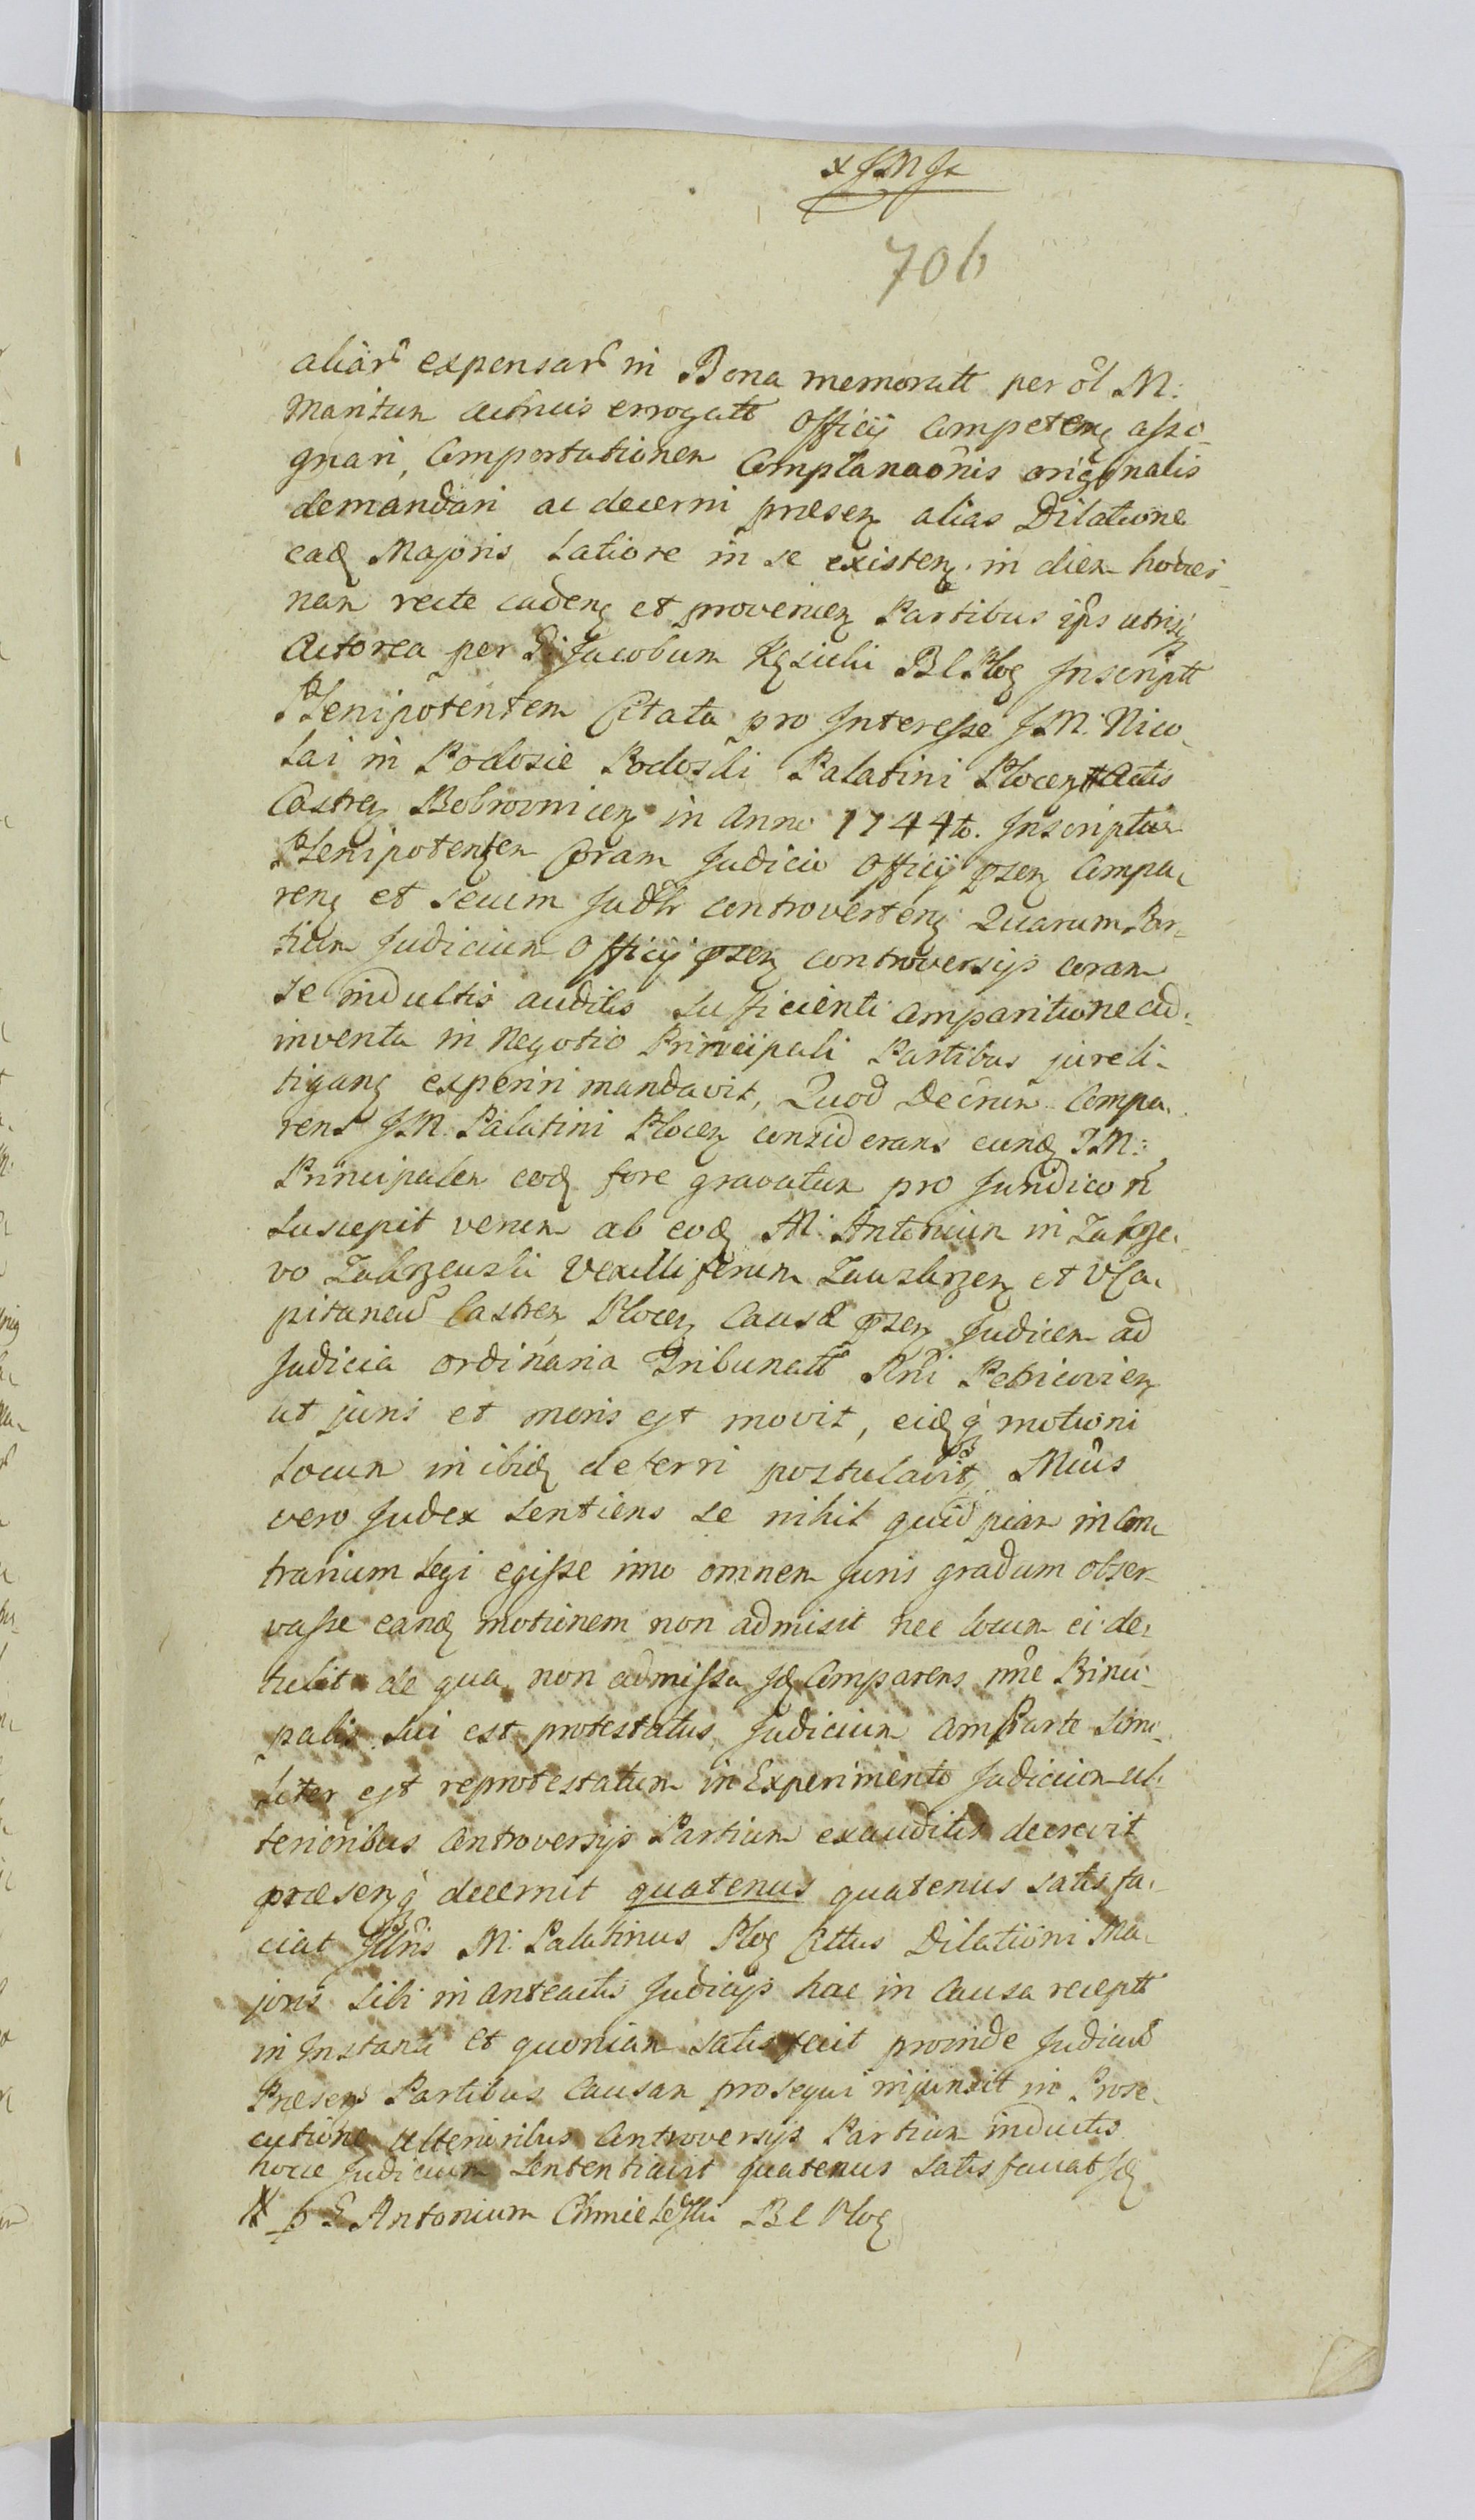 x JMJx
706
aliar̃ expensar̃ in Bona memoratt per ol̃ M:
Maritum actricis errogatt Officÿ Competenʒ assi-
gnari, Comportationem Complanaõnis originalis
demandari ac decerni præsenʒ alias Dilatione
eadʒ Majoris Latiore in se existenʒ in diem hodier-
nam recte cadenʒ et provenienʒ Partibus ip̃s utrisqʒ
Actorea per G: Jacobum BlPlocʒ Inscriptt
Plenipotentem Citata pro Interesse J.M. Nico-
lai in Podosie Podoski Palatini Plocenʒ # Actis
Castrenʒ Bobrovnicenʒ in Anno 1744to. Inscriptum
Plenipotentem Coram Judicio Officÿ p̃senʒ Compa-
renʒ et secum Jud̃lr controvertenʒ Quarum Par-
tium Judicium Officÿ p̃senʒ controversÿs coram
se indultis auditis sufficienti Comparitione ad-
inventa in Negotio Principali Partibus jure li-
tiganʒ experiri mandavit, Quod Decr̃um Compa-
rens J.M. Palatini Plocenʒ considerans eundʒ J.M:
Principalem eodʒ fore gravatum pro Juridico ñ
suscepit verum ab eodʒ M: Antonium in Zakrze-
vo Zakrzewski Vexilliferum Zauskrzenʒ et VCa-
pitaneũ Castrenʒ Plocenʒ Causæ p̃senʒ Judicem ad
Judicia Ordinaria Tribunatt Rñi Petricovienʒ
ut juris et moris est movit, eidʒq̃ motioni
Locum in ibidʒ deferri postulavit, Mıũs
vero Judex sentiens se nihil quidpiam in Con-
trarium Legi egisse imo omnem Juris gradum obser-
vasse eandʒ motionem non admisit nec locum ei de-
tulit de qua non admissa Jdʒ Comparens ññe Princi-
palis sui est protestatus Judicium Comparte simi-
liter est reprotestatum in Experimento Judicium ul-
terioribus Controversÿs Partium exauditis decrevit
præsenʒq̃ decernit quatenus quatenus satisfa-
ciat Jll̃ris M: Palatinus Plocʒ Cittus Dilationi Ma-
joris sibi in anteactis Judicÿs hac in Causa receptt
in Instanti Et quoniam satisfecit proinde Judiciũ
Præsens Partibus Causam prosequi injunxit in Prose-
cutione ulterioribus Controversÿs Partium inductis
hocce Judicium Sententiavit quatenus satisfaciat Jdʒ
# p G Antonium Chmieleski Bl Plocʒ